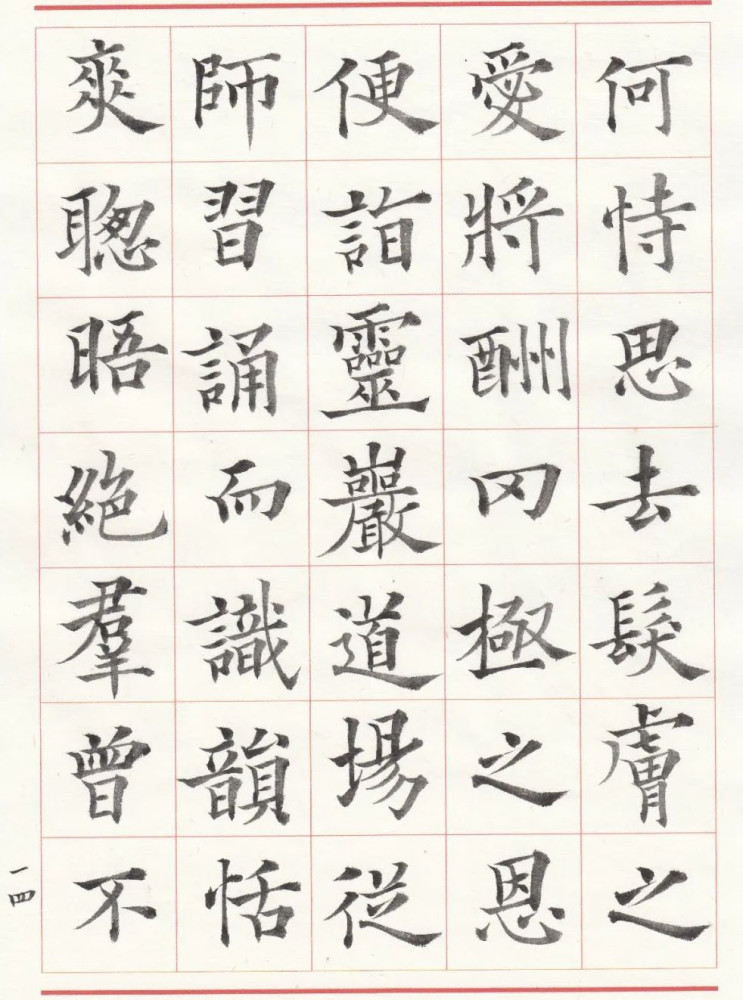 何恃思去髮膚之
愛將酬罔極之恩
便詣靈巖道場從
師習誦而識韻恬
爽聦晤絕羣曾不
一四